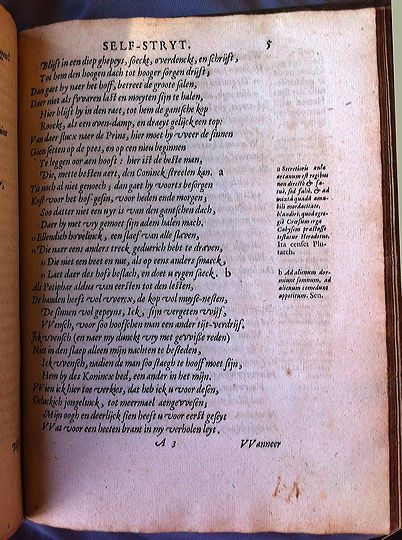 SELF-STRYT. 5
Blijft in een diep ghepeys, soeckt, overdenckt, en schrijft,
Tot hem den hoogen dach tot hooger sorgen drijft;
Dan gaet hy naer het hoff, betreet de groote salen,
Daer met als swaren last en moeyten sijn te halen,
Hier blijft hy in den raet, tot hem de gantsche kop
Roockt, als een oven-damp, en draeyt gelijck een top:
Van daer flucx naer de Prins, hier moet hy weer de sinnen
Gaen setten op de pees, en op een nieu beginnen
Te leggen oor aen hooft: hier ist de beste man,
Die, mette besten aert, den Coninck streelen kan. a
Tis noch al niet genoech; dan gaet hy voorts besorgen
Kost voor het hof-gesin, voor heden ende morgen,
Soo datter niet een uyr is van den gantschen dach,
Daer by met wy gemoet sijn adem halen mach.
" Ellendich hovelinck, een slaef van alle slaven,
" Die naer eens anders treck geduerich hebt te draven,
" Die niet een beet en nut, als op eens anders smaeck,
" Laet daer des hofs beslach, en doet u eygen saeck. b
Als Potiphar aldus van eersten tot den lesten,
De handen heeft vol wercx, de kop vol muyse-nesten,
De sinnen vol gepeyns, Ick, sijn vergeten wijf,
Wensch, voor soo hoofschen man een ander tijt-verdrijf.
Ick wensch (en naer my dunckt wy met gewisse reden)
Niet in den slaep alleen mijn nachten te besteden,
Ick wensch, nadien de man soo staegh te hooff moet sijn,
Hem by des Konincx bed, een ander in het mijn.
Wien ick hier toe verkies, dat heb ick u voor desen,
Geluckich jongelinck, tot meermael aengewesen,
Mijn oogh en deerlijck sien heeft u voor eerst geseyt
Wat voor een heeten brant in my verholen leyt.
A 3 VVanneer
a Secretioris aula
arcanum est regibus
non directò & sa-
tis, sed salsè, & ad
mixtâ quadâ ama-
bili mordacitate,
blandiri, quod egre-
giè Cræsum erga
Cabysem præstisse
testatur Herodotus.
Ita censet Plu-
tarch.
b Ad alienum dor-
miunt somnum, ad
alienum comedunt
appetitum. Sen.